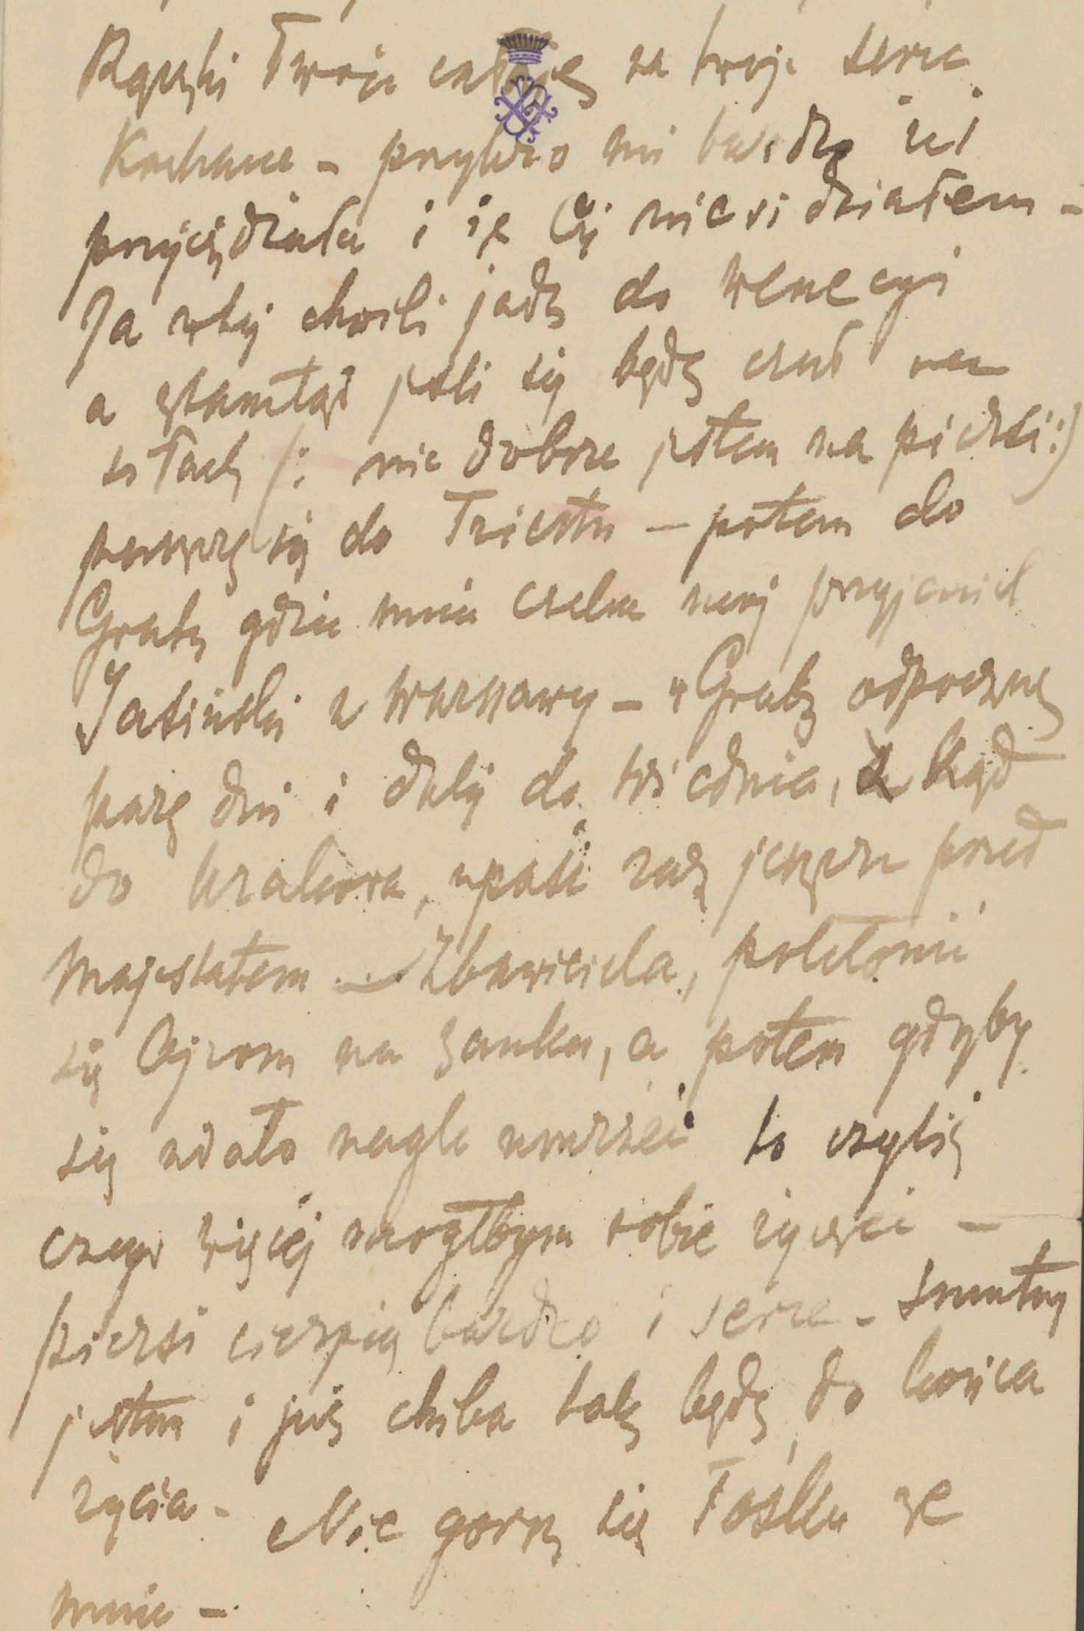 Rączki Twoje całuję za twoje serce
Kochane – przykro mi bardzo żeś
przyjeżdżała i że Cię nie widziałem –
Ja w tej chwili jadę do Wenecyi
a ztamtąd jeśli się będę czuł na
siłach (: nie dobrze jestem na piersi :)
powrócę się do Triestu – potem do
Gratz gdzie mnie czeka mój przyjaciel
Jasiński z Warszawy – w Gratz odpocznę
parę dni i dalej do Wiednia, z kąd
do Krakowa, upaść raz jeszcze przed
Majestatem – Zbawiciela, pokłonić
się Ojcom na Zamku, a potem gdyby
się udało nagle umrzeć to czyliż
czego więcej mógłbym sobie życzyć –
piersi cierpią bardzo i serce – smutny
jestem i już chyba taki będę do końca
życia – Nie gorsz się Tośku ze
mnie –